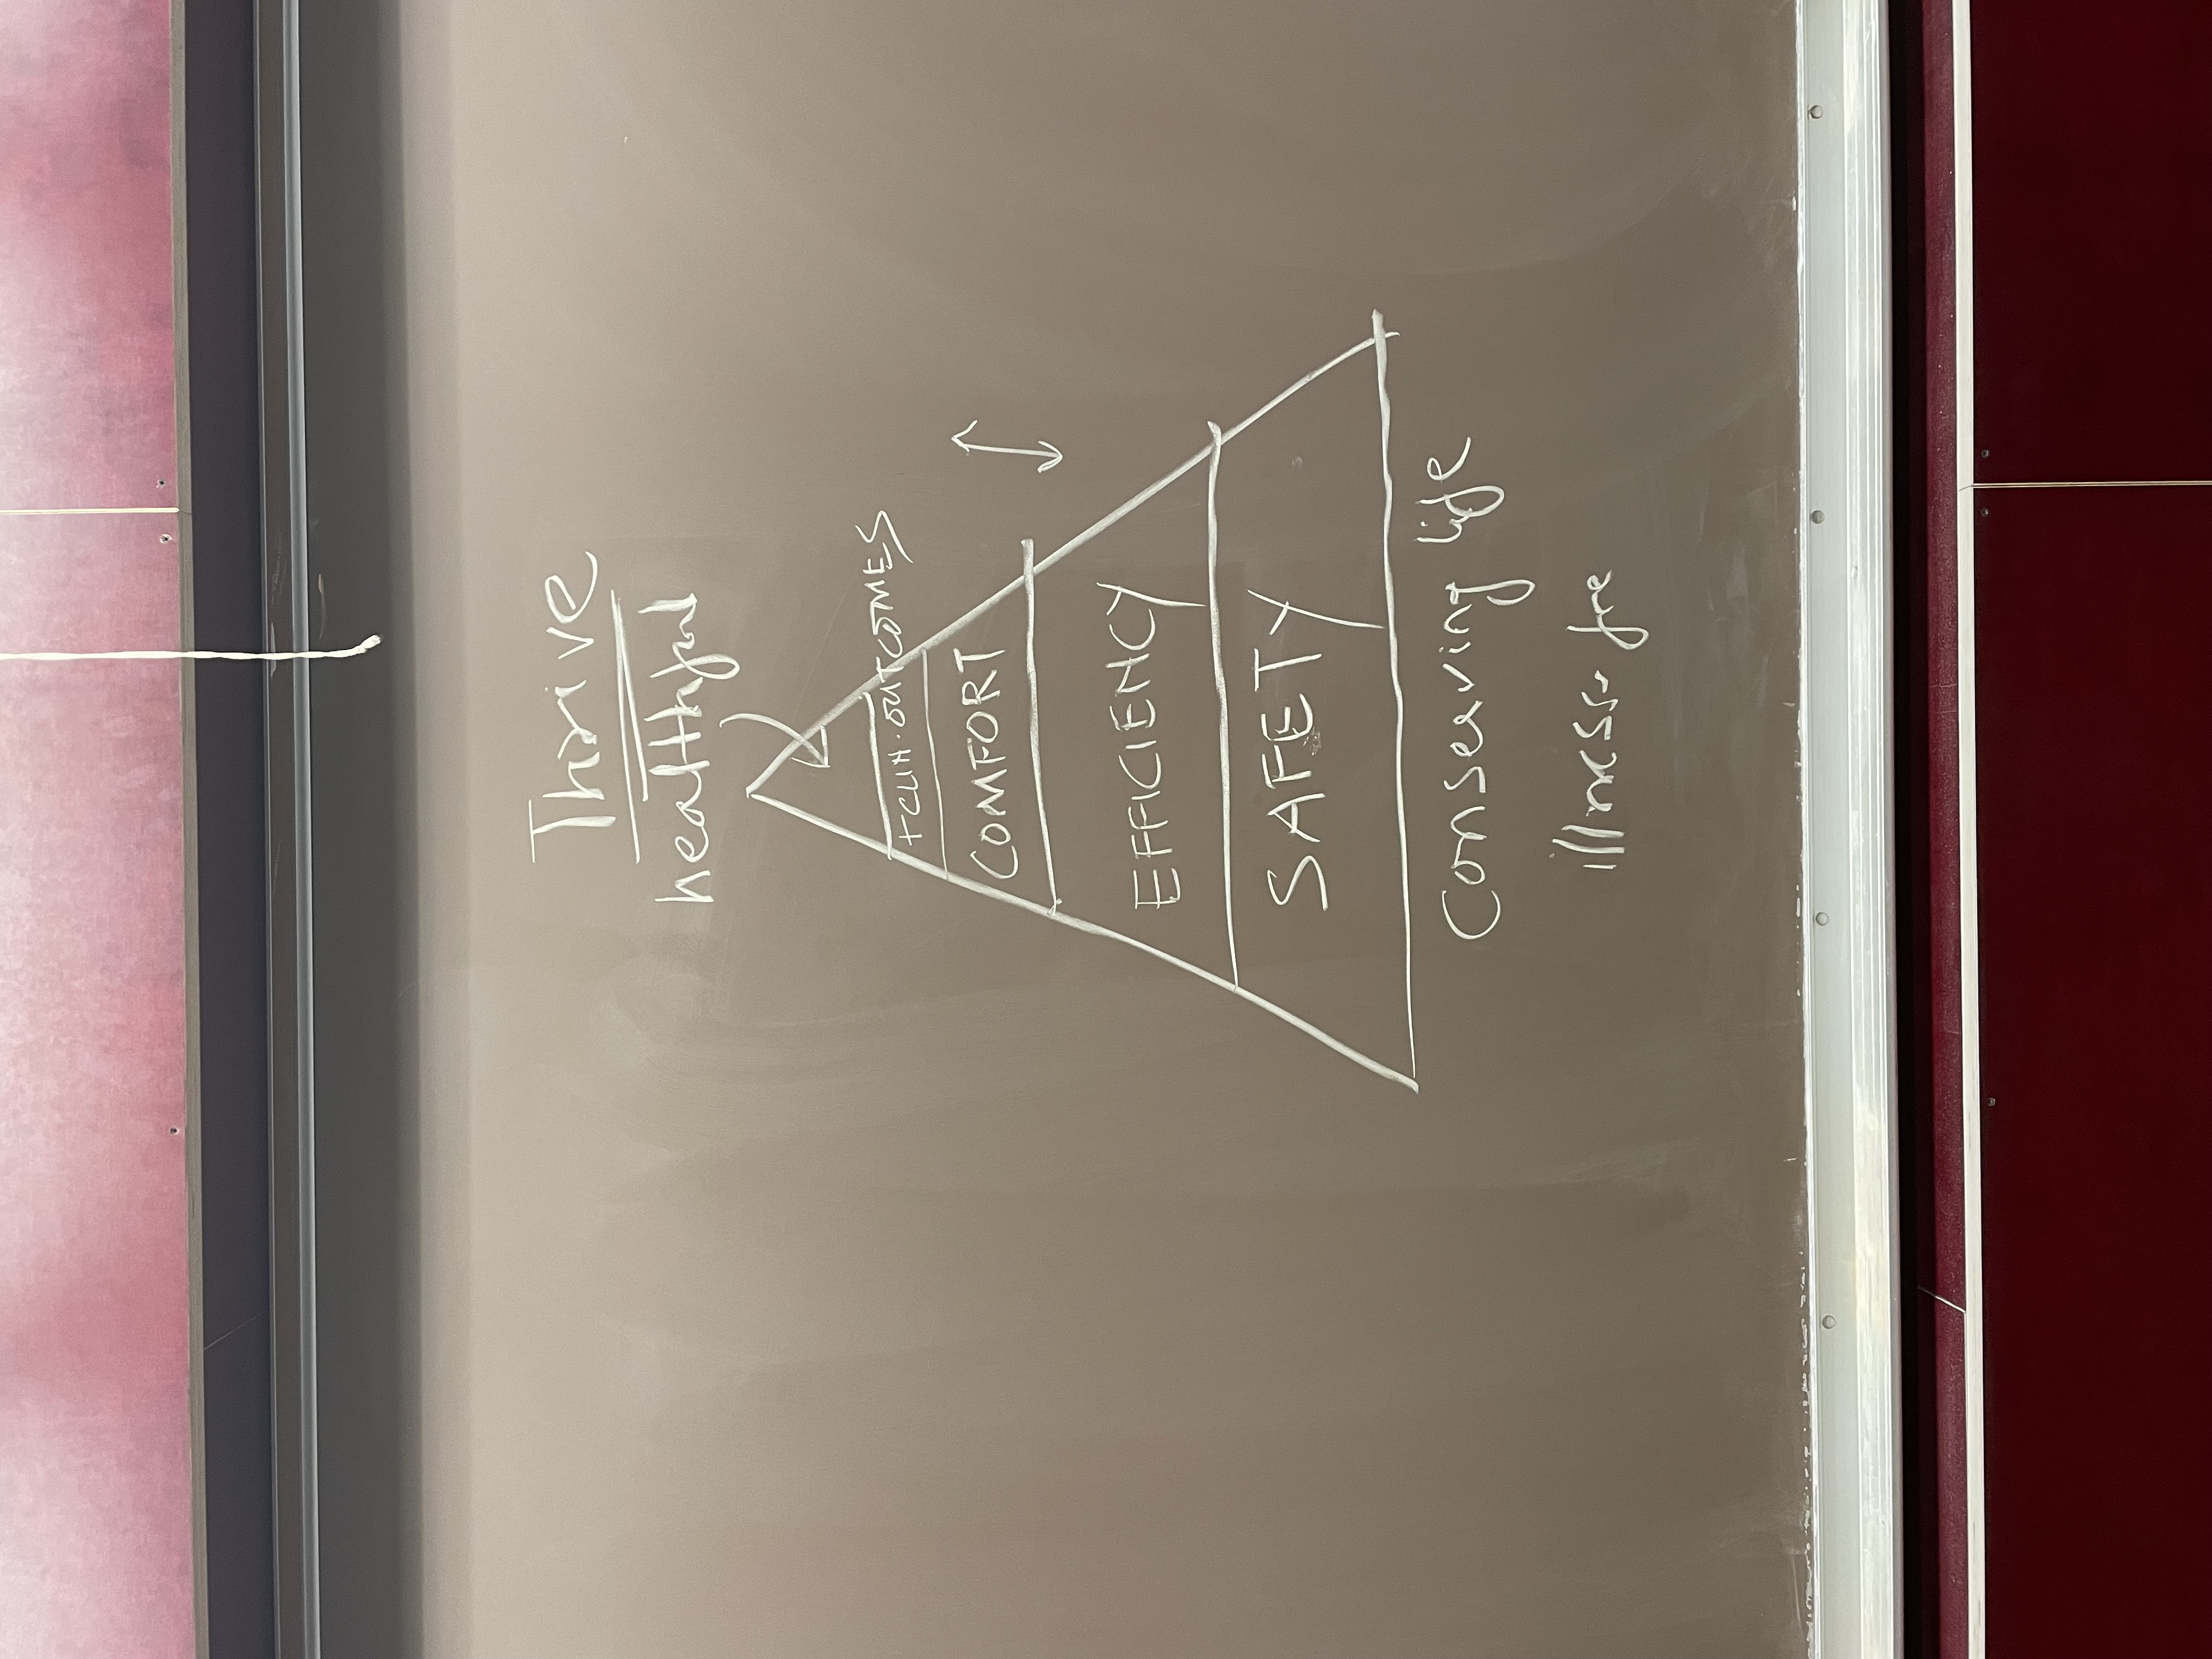 Thrive
healthful
+ CLIN. OUTCOMES
COMFORT
EFFICIENCY
SAFETY
Conserving life
illness free